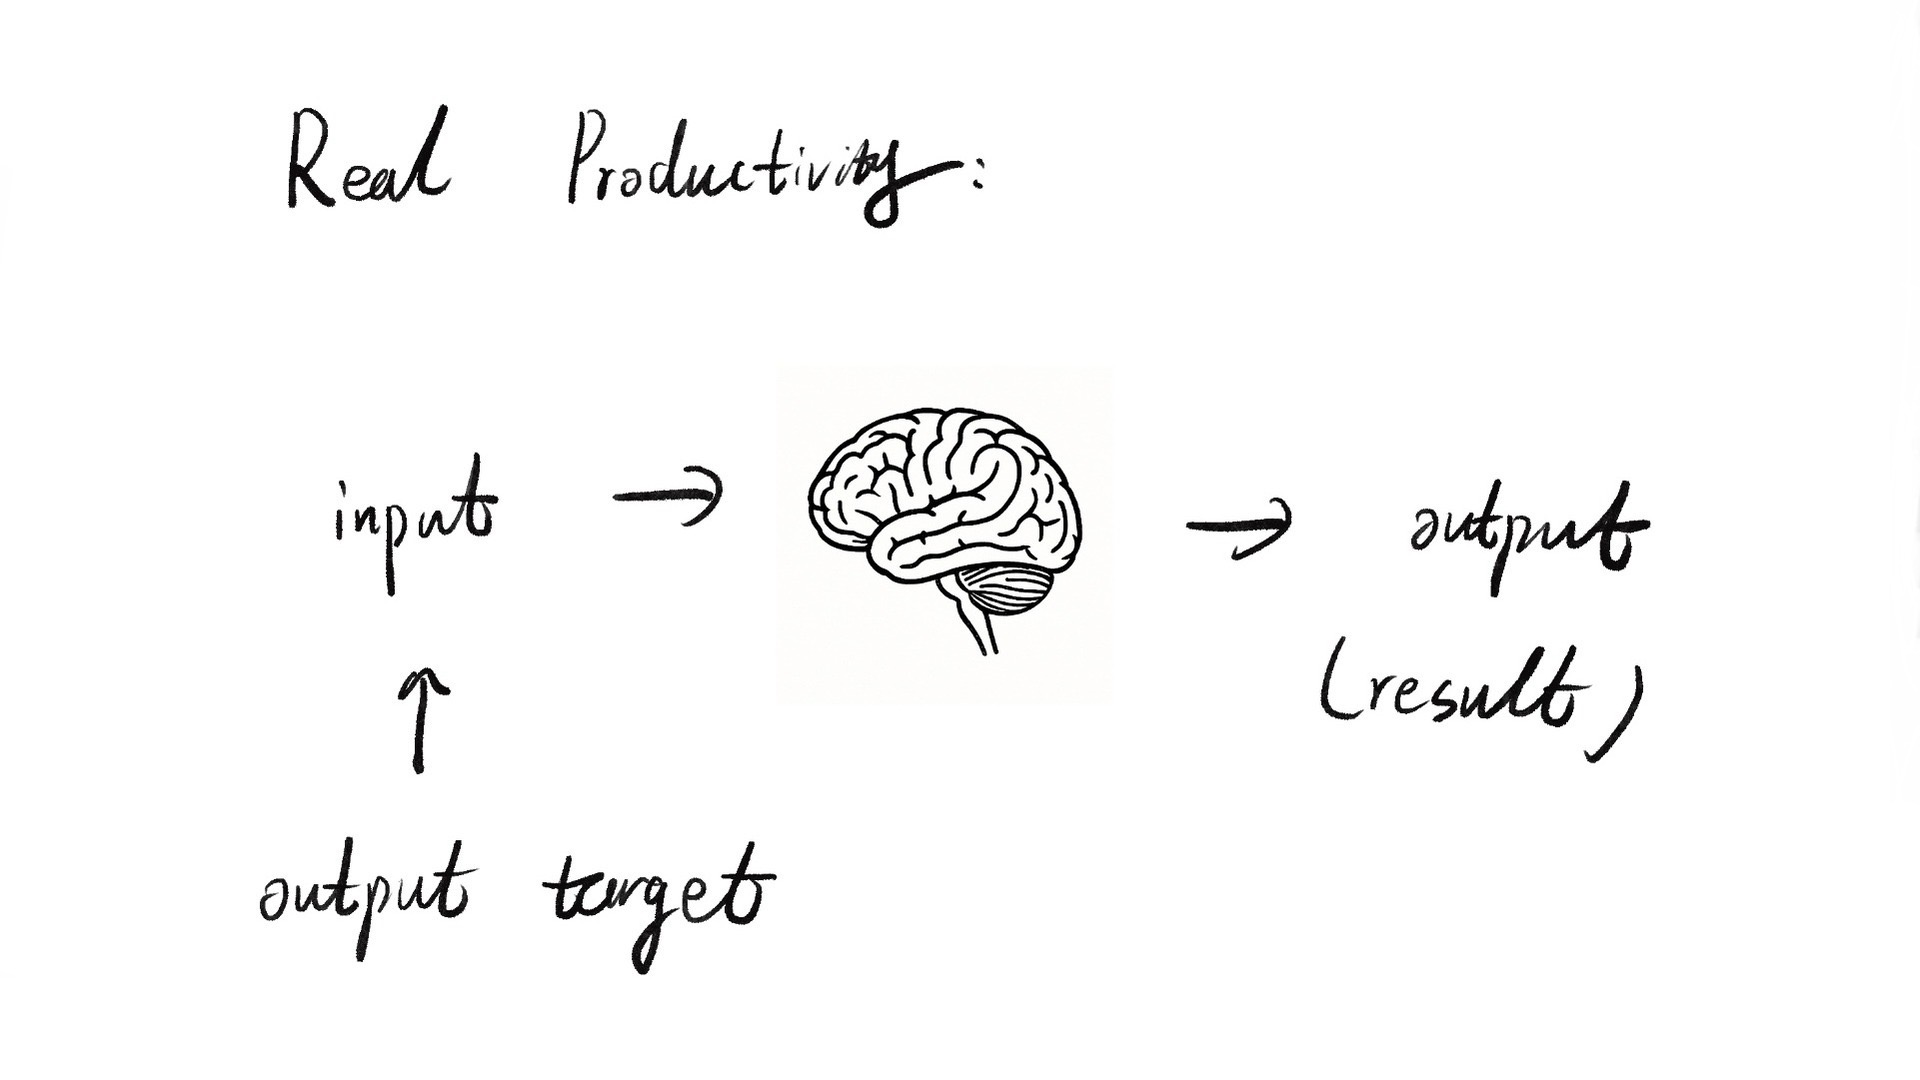 Real Productivity:
input → → output
↑ (result)
output target